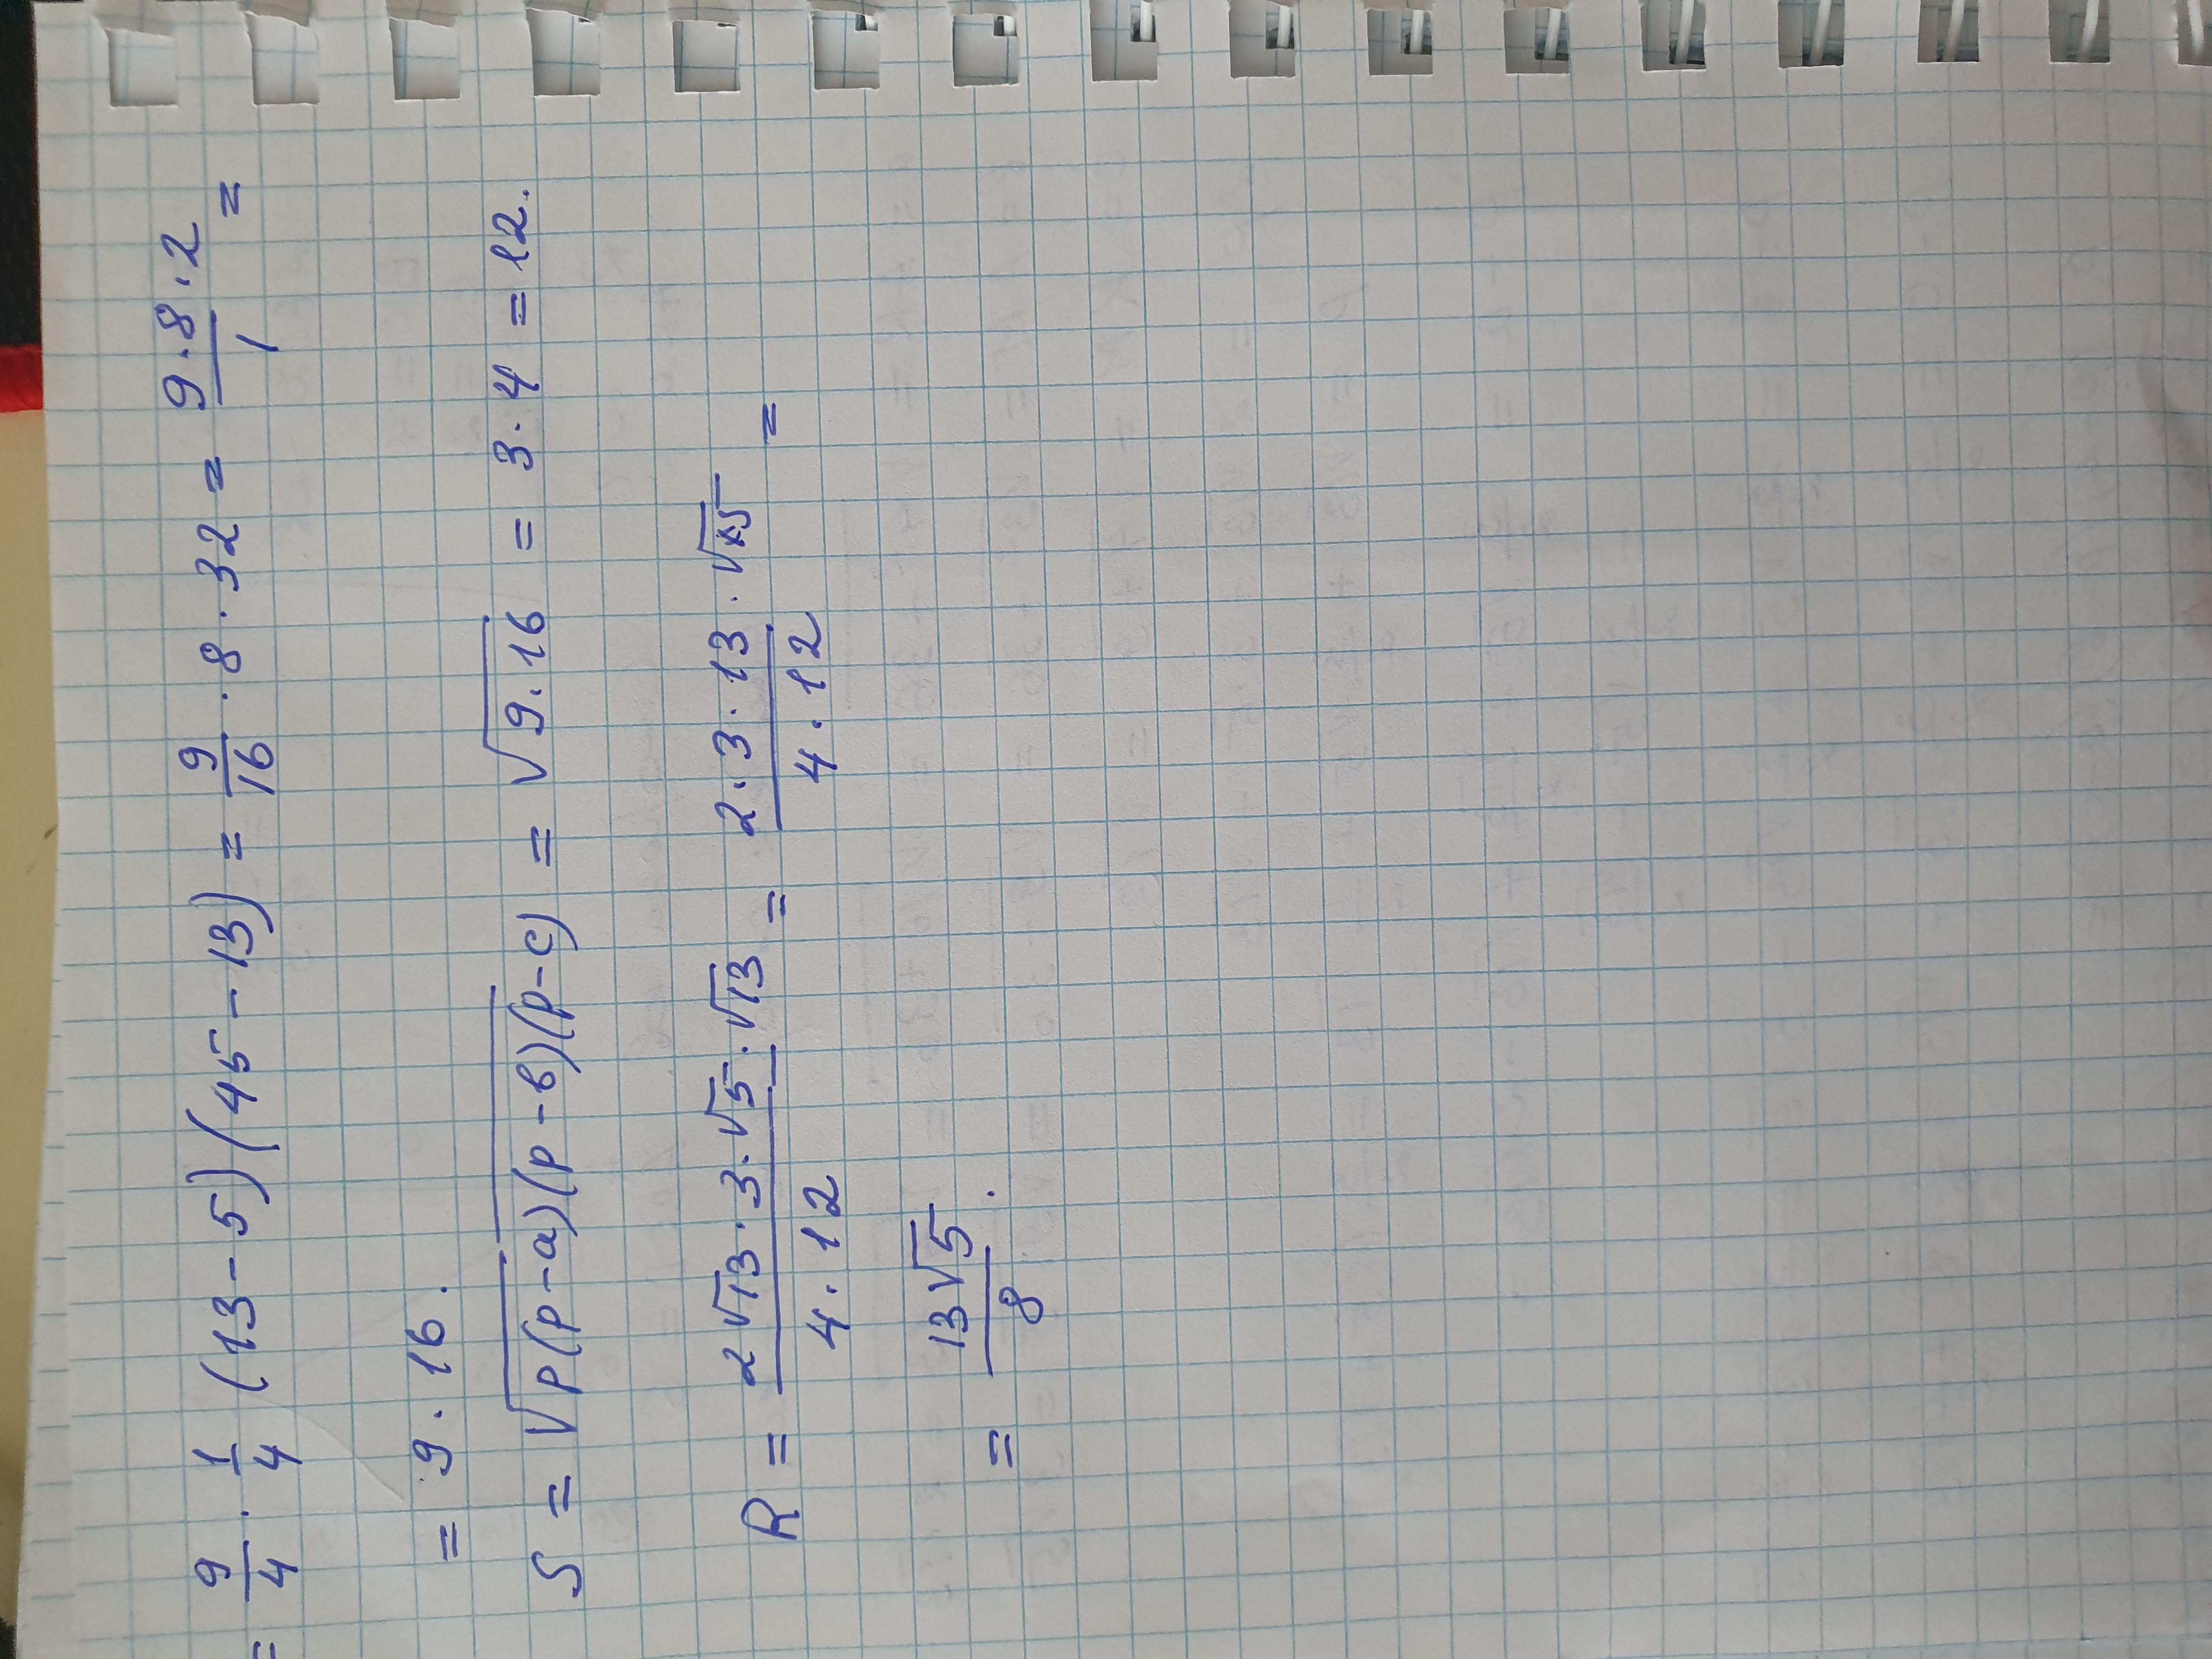 = 9/4 · 1/4 (13 - 5)(45 - 13) = 9/16 · 8 · 32 = 9·8·2/1 =
= 9 · 16.
S = √(p(p-a)(p-в)(p-c)) = √(9·16) = 3·4 = 12.
R = 2√13 · 3·√5 · √13 / 4·12 = 2·3·13 · √5 / 4·12 =
= 13√5 / 8 .